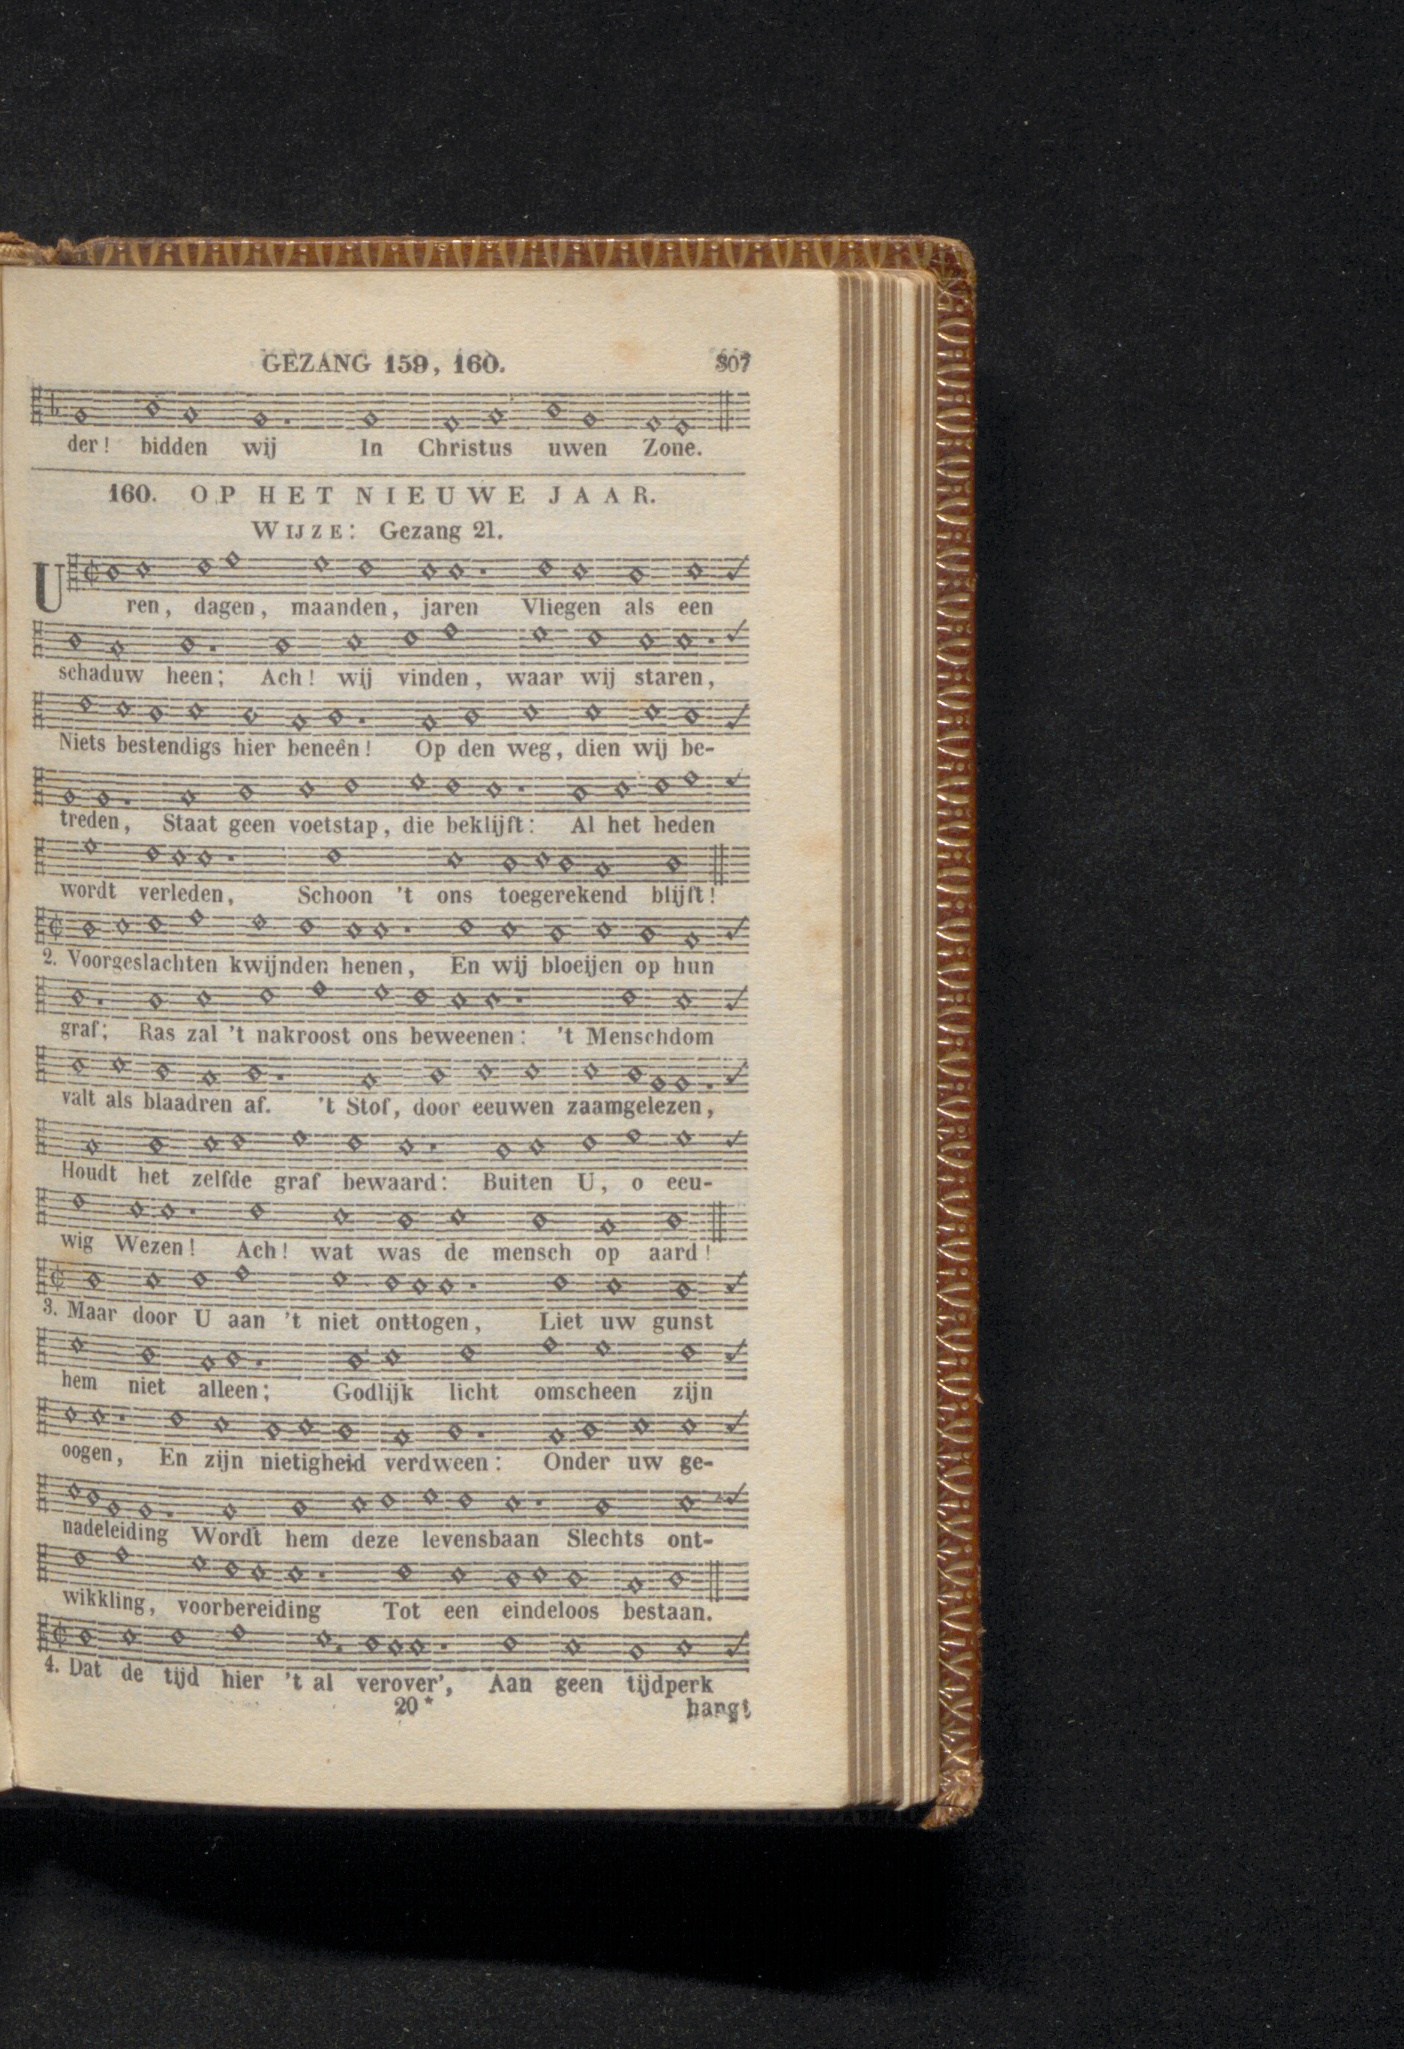 GEZANG 159, 160. 307
der! bidden wij In Christus uwen Zone.
160. OP HET NIEUWE JAAR.
WIJZE: Gezang 21.
Uren, dagen, maanden, jaren Vliegen als een
schaduw heen; Ach! wij vinden, waar wij staren,
Niets bestendigs hier beneên! Op den weg, dien wij be-
treden, Staat geen voetstap, die beklijft: Al het heden
wordt verleden, Schoon 't ons toegerekend blijft!
2. Voorgeslachten kwijnden henen, En wij bloeijen op hun
graf; Ras zal 't nakroost ons beweenen: 't Menschdom
valt als blaadren af. 't Stof, door eeuwen zaamgelezen,
Houdt het zelfde graf bewaard: Buiten U, o eeu-
wig Wezen! Ach! wat was de mensch op aard!
3. Maar door U aan 't niet onttogen, Liet uw gunst
hem niet alleen; Godlijk licht omscheen zijn
oogen, En zijn nietigheid verdween: Onder uw ge-
nadeleiding Wordt hem deze levensbaan Slechts ont-
wikkling, voorbereiding Tot een eindeloos bestaan.
4. Dat de tijd hier 't al verover', Aan geen tijdperk
20* hangt